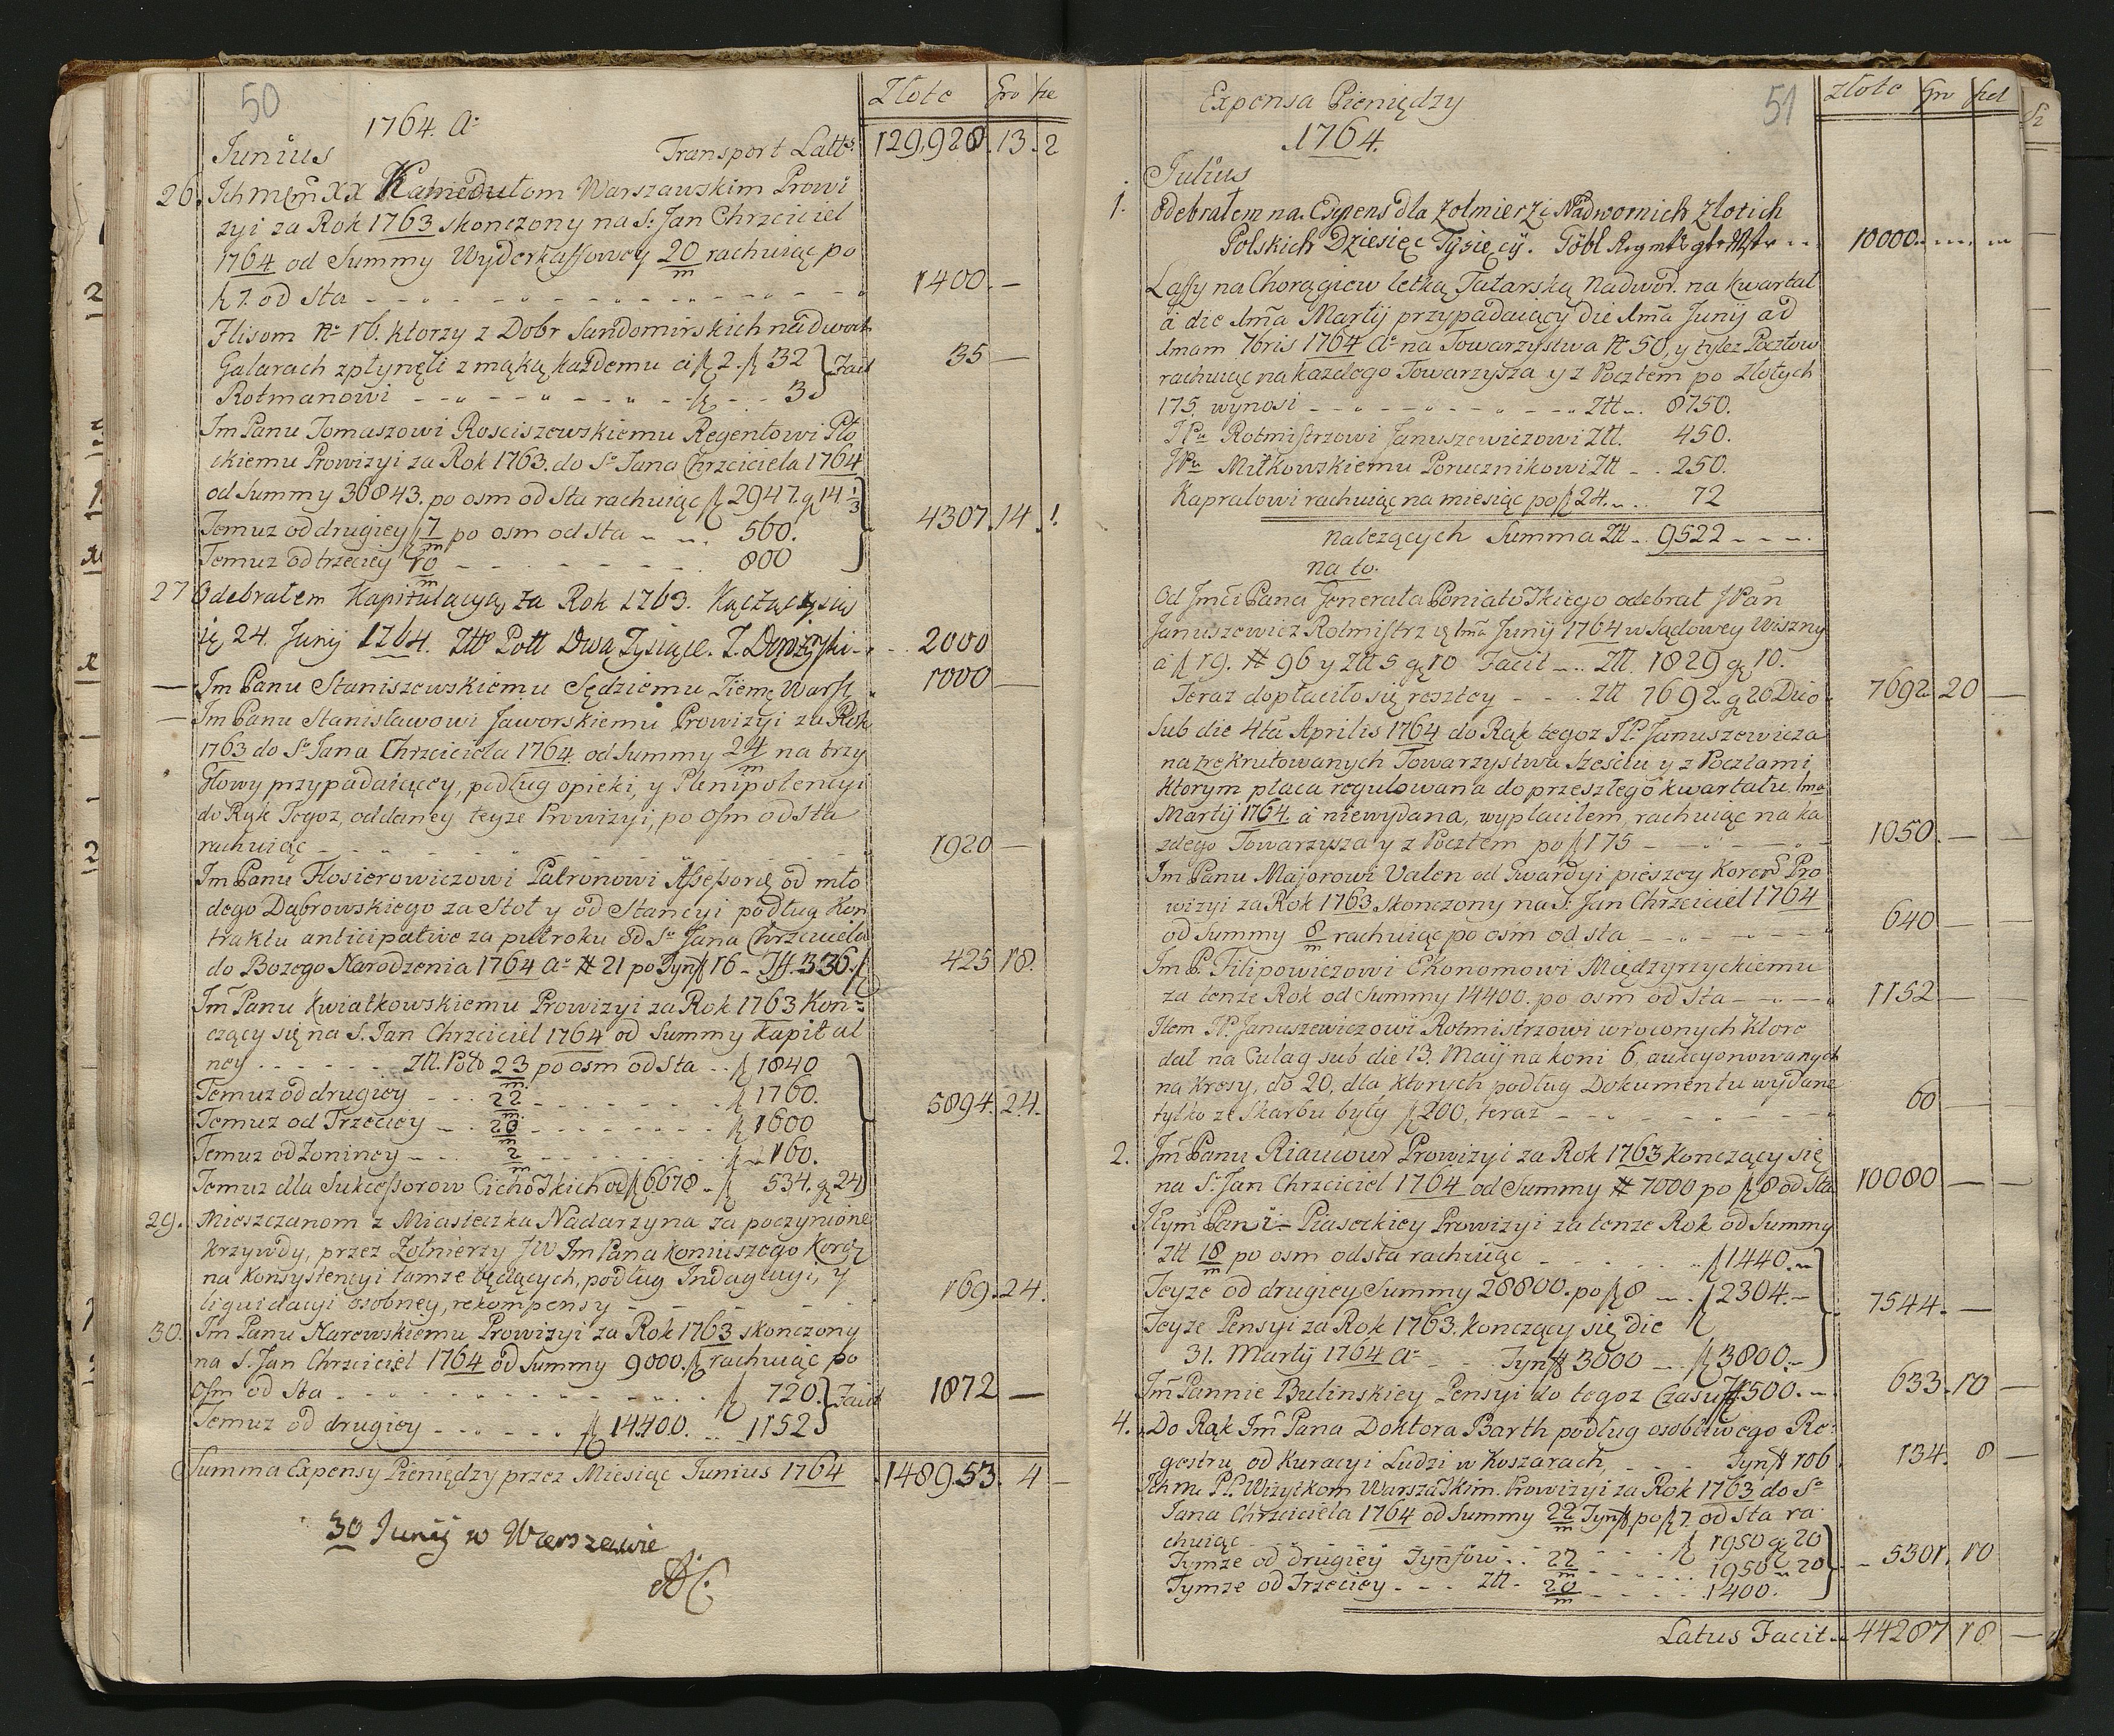 50
1764. Aº
Złote Gro sze
Junius Transport Lattᵉ 129,928. 13. 2
26. Ichm XX Kamedułom Warszawskim Prowi
zyi za Rok 1763 skonczony na S: Jan Chrzciciel
1764 od Summy Wyderkaffowey 20/m rachuiąc po
7. od sta - - - 1400. —
Flisom No 16. ktorzy z Dobr Sandomirskich na dwoch
Galarach zpłynęli z mąką, każdemu a 2. 32 } Facit 35 —
Rotmanowi - - - 3
Im Panu Tomaszowi Rosciszewskiemu Regentowi Pło
ckiemu Prowizyi za Rok 1763. do Sº Jana Chrzciciela 1764
od Summy 36843. po osm od sta rachuiąc 2947. g 14 1/3
Temuz od drugiey 7/m po osm od sta - - 560. } 4307. 14. 1.
Temuz od trzeciey 10/m - - - 800
27 Odebrałem Kapitulacyą za Rok 1763.
24. Junij 1764. Zttº Poll Dwa Tysiące. - - 2000
— Im Panu Staniszewskiemu Sędziemu Ziemę Warsz. 1000 —
— Im Panu Stanisławowi Jaworskiemu Prowizyi za Rok
1763 do Sº Jana Chrzciciela 1764 od Summy 24/m na trzy
Głowy przypadaiącey, podług opieki, y Plenipotencyi
do Rąk Tegoz, oddaney teyze Prowizyi, po osm od sta
rachuiąc - - - 1920 —
Im Panu Flosierowiczowi Patronowi Assessorię od mło
dego Dąbrowskiego za Stoł y od Stancyi podług Kon
traktu anticipative za puł roku od Sº Jana Chrzciciela
do Bozego Narodzenia 1764 Aº # 21 po Tynf 16 - Tf. 336. 425 18.
Im Panu Kwiatkowskiemu Prowizyi za Rok 1763 Kon:
czący się na S. Jan Chrzciciel 1764 od Summy Kapital
ney - - - Ztt. Pols 23/m po osm od sta - - 1840
Temuz od drugiey - - - 22/m - - - 1760.
Temuz od Trzeciey - - 20/m - - - 1600 } 5894. 24.
Temuz od Zoniney - - - 2/m - - - 160.
Temuz dla Sukcessorow Cichoskich od 6678 - 534. g 24
29. Mieszczanom z Miasteczka Nadarzyna za poczynione
krzywdy, przez Zołnierzy JW Im Pana Koniuszego Korę
na Konsystencyi tamze będących, podług Indagacyi, y
liquidacyi osobney, rekompensy - - - 169. 24.
30. Im Panu Narewskiemu Prowizyi za Rok 1763 skonczony
na S. Jan Chrzciciel 1764 od Summy 9000. rachuiąc po
osm od sta - - - 720. } Facit 1872 —
Temuz od drugiey - - - 14400. - - 1152
Summa Expensy Pieniędzy przez Miesiąc Junius 1764 148953. 4 —
30 Junij w Warszawie
51
Expensa Pieniędzy
1764.
złote Gro szel
Julius
1. Odebrałem na Expens dla Zołnierzi Nadwornich Złotich
Polskich Dziesięc Tysięcÿ. - - 10000. - -
Laffy na Chorągiew letką Tatarską Nadwor. na kwartał
a die 1ma Martij przypadaiący die 1ma Junij ad
1mam 7bris 1764 Aº na Towarzystwa No 50, y tylez Pocztow
rachuiąc na kazdego Towarzysza y z Pocztem po Złotych
175. wynosi - - - Ztt - . 8750.
JPu Rotmistrzowi Januszewiczowi Ztt. 450.
JPu Miłkowskiemu Porucznikowi Ztt - . 250.
Kapralowi rachuiąc na miesiąc po 24. - . 72
nalezących Summa Ztt - . 9522 - - -
na to.
Od Jmci Pana Jenerała Poniatoskiego odebrał JPan
Januszewicz Rotmistrz 1ma Junij 1764 w Sądowey Wiszny
a 19. # 96 y Ztt 5 g 10 Facit - . Ztt 1829 g 10.
Teraz dopłaciło się resztey - - . Ztt 7692. g 20 Dico 7692 20 —
Sub die 4ta Aprilis 1764 do Rąk tegoz JP. Januszewicza
na zrekrutowanych Towarzystwa Sześciu y z Pocztami
ktorym płaca regulowana do przeszłego kwartału 1ma
Martij 1764. a niewydana, wypłaciłem, rachuiąc na ka
zdego Towarzysza y z Pocztem po 175 - - - 1050. —
Im Panu Majorowi Valen od Gwardyi pieszey Koron Pro
wizyi za Rok 1763 skonczony na S. Jan Chrzciciel 1764
od Summy 8/m rachuiąc po ośm od sta - - - 640 —
Im P. Filipowiczowi Ekonomowi Międzyrzyckiemu
za tenze Rok od Summy 14400. po osm od Sta - - - 1152 —
Item JP. Januszewiczowi Rotmistrzowi wroconych ktore
dał na Culag sub die 13. Maij na koni 6. aukcyonowanych
na kresy, do 20, dla ktorych podług Dokumentu wydane
tylko ze Skarbu były 200, teraz - - - 60 —
2. Jm Panu Riaucour Prowizyi za Rok 1763 konczący się
na S. Jan Chrzciciel 1764 od Summy # 7000 po 8 od Sta 10080 —
Jeym Pani Piaseckiey Prowizyi za tenze Rok od Summy
Ztt 18/m po osm od sta rachuiąc - - - 1440. -
Teyze od drugiey Summy 28800. po 8 - . 2304. - } 7544. —
Teyze Pensyi za Rok 1763. konczący się die
31. Martij 1764 Aº - . Tynf 3000 - . 3800. -
Jm Pannie Bulinskiey Pensyi do tegoz Czasu Tf 500. - 633. 10 —
4. Do Rąk Jm Pana Doktora Barth podług osobliwego Re:
gestru, od Kuracyi Ludzi w Koszarach, - - - Tynf 106 134. 8 —
Ichm PP. Wizytkom Warszaskim Prowizyi za Rok 1763 do Sº
Jana Chrzciciela 1764 od Summy 22/m Tynf po 7 od Sta ra
chuiąc - - - 1950 g 20
Tymze od drugiey Tynfow - . 22/m - - - 1950 - 20 } - 5301. 10
Tymze od Trzeciey - - - Ztt - 20/m - - - 1400.
Latus Facit - 44287 18 —